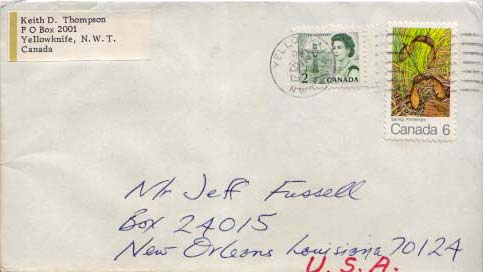 Keith D. Thompson
P O Box 2001
Yellowknife, N. W. T.
Canada
2 CANADA
Spring Printemps
Canada 6
Mr Jeff Fussell
Box 24015
New Orleans Louisiana 70124
U.S.A.